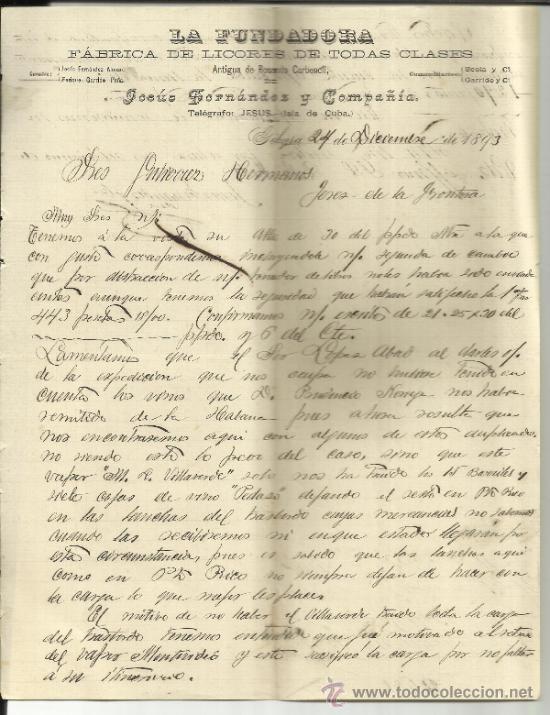 LA FUNDADORA
FÁBRICA DE LICORES DE TODAS CLASES
Antigua de Rosendo Carbonell,
Gerentes: Jesús Fernández Alonso. Federico Garrido Peña. Comanditarios: Costa y Cª Garrido y Cª
Jesús Fernández y Compañía.
Telégrafo: JESUS—(Isla de Cuba.)
24 de Diciembre de 1893
Sres Gutierrez Hermanos
Jerez de la Frontera
Muy Sres n/s
Tenemos á la vista su de 30 del ppdo á la que
con gusto correspondemos n/ segunda de cambio
que por distraccion de n/ no les habia sido enviada
antes aunque tenemos la seguridad que habrán satisfecho la 1ª
443 pesetas 18/00. Confirmamos n/ de 21-25 x 30 del
ppdo. y 6 del Cte.
Lamentamos que el Sor Lopez Abad al darles
de la expedicion que nos ocupa no hubiese tenido en
cuenta los vinos que D. nos habia
remitido de la Habana pues ahora resulta que
nos encontraremos aqui con algunos de estos duplicados
no siendo esto lo peor del caso, sino que este
vapor "M. L. Villaverde" solo nos ha traido los 15 Barriles y
siete cajas de vino dejando el resto en Pto Rico
en las lanchas del trasbordo cuyas mercancias no sabemos
cuando las recibiremos ni en que estado llegarán por
esta circunstancia, pues es sabido que las lanchas aqui
como en Pto Rico no siempre dejan de hacer con
la carga lo que mejor les place.
El motivo de no haber el Villaverde traido toda la carga
del trasbordo tenemos entendido que fué motivado al retraso
del vapor Montevideo y este la carga por no faltar
á su itinerario.
todocoleccion.net